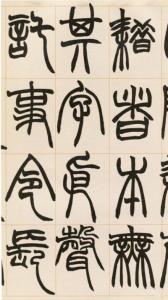 者本無
其字聲
託事令長